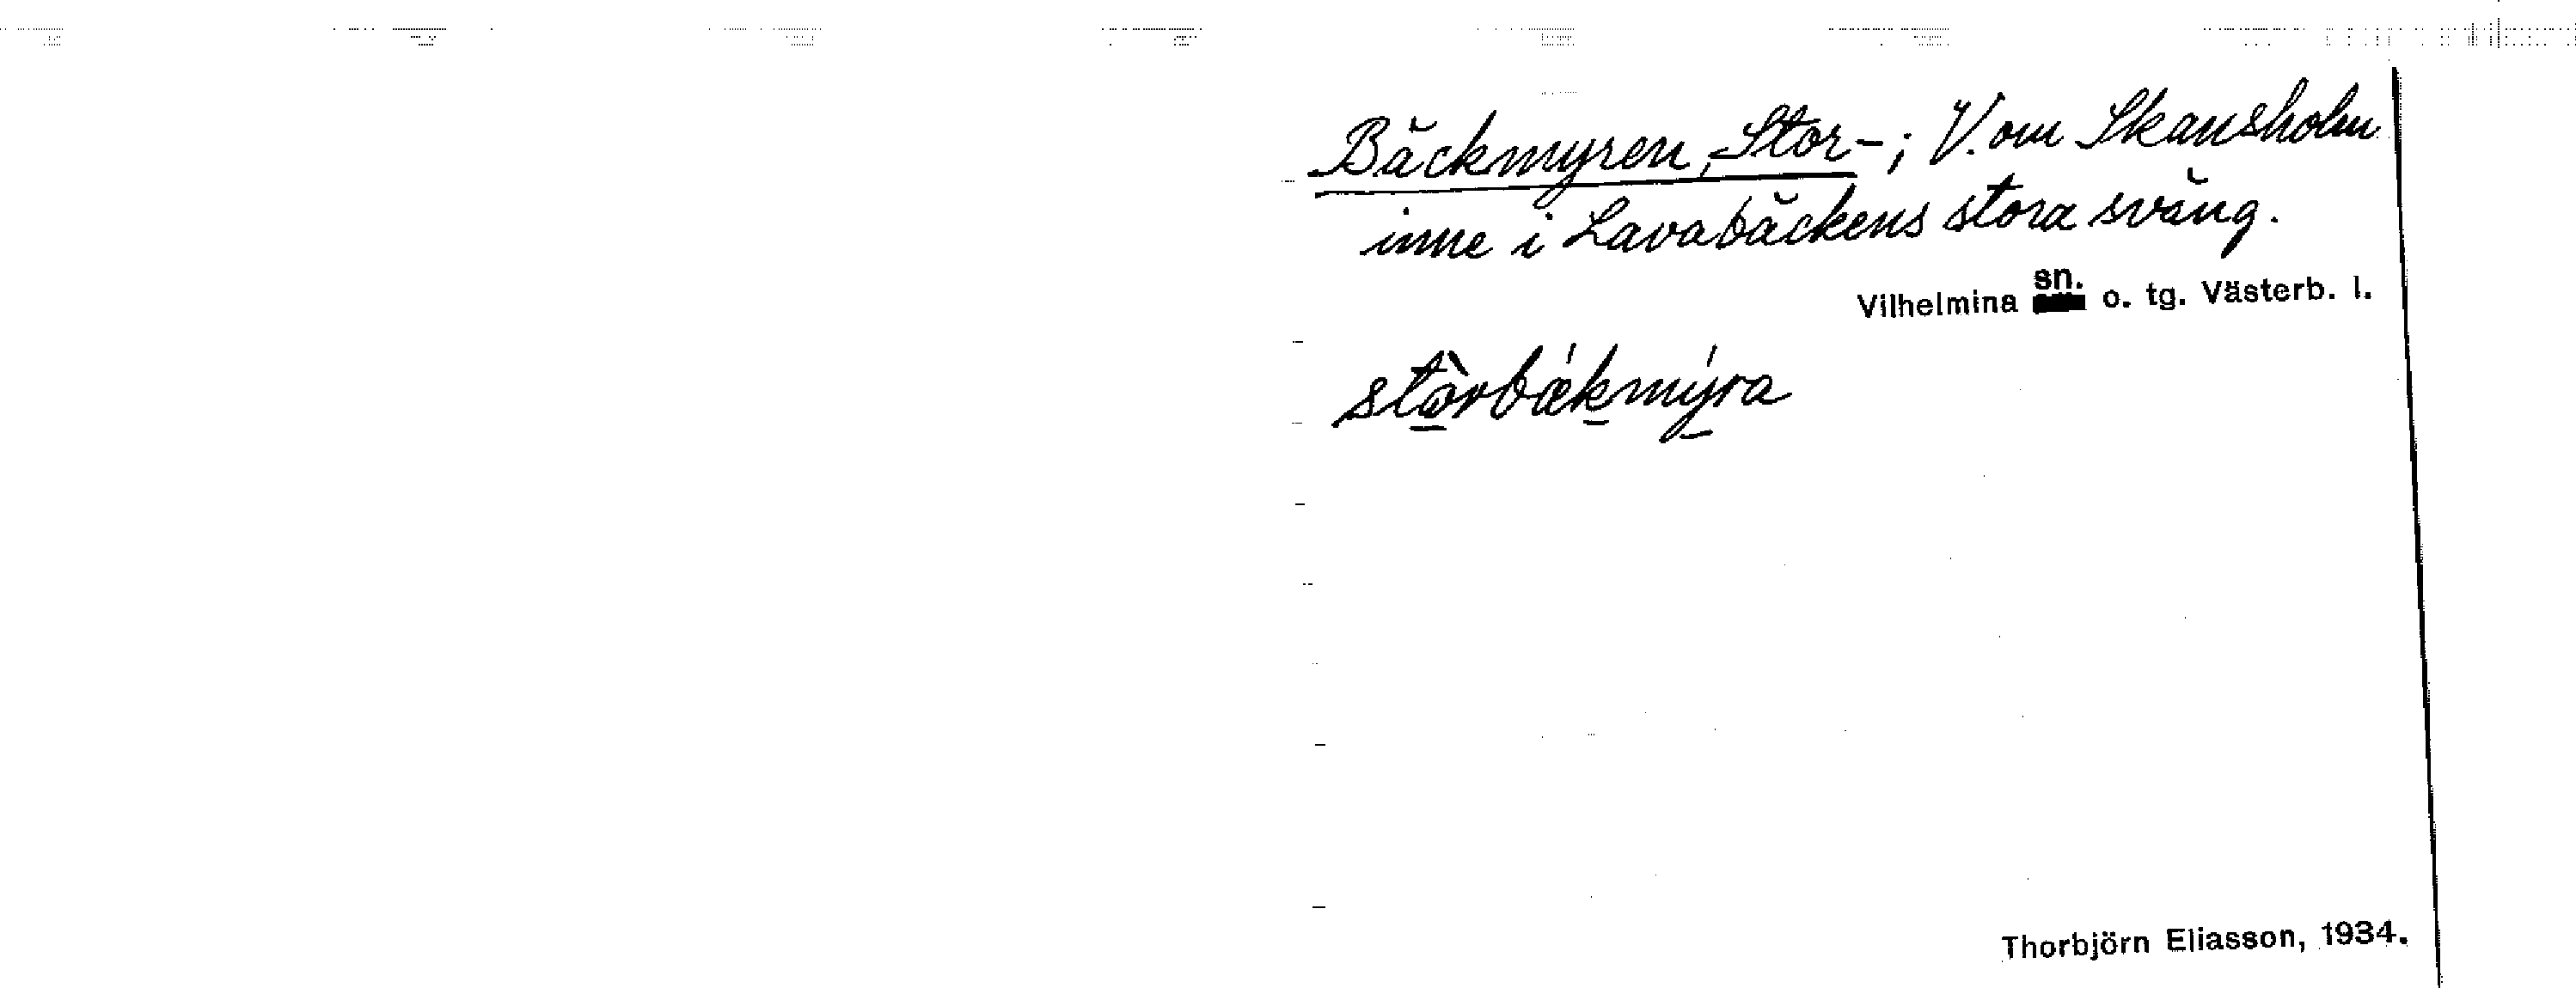 Bäckmyren, Stor-; V. om Skansholm
inne i Lavabäckens stora sväng.
Vilhelmina sn. o. tg. Västerb. l.
stòrbǽkmýra
Thorbjörn Eliasson, 1934.